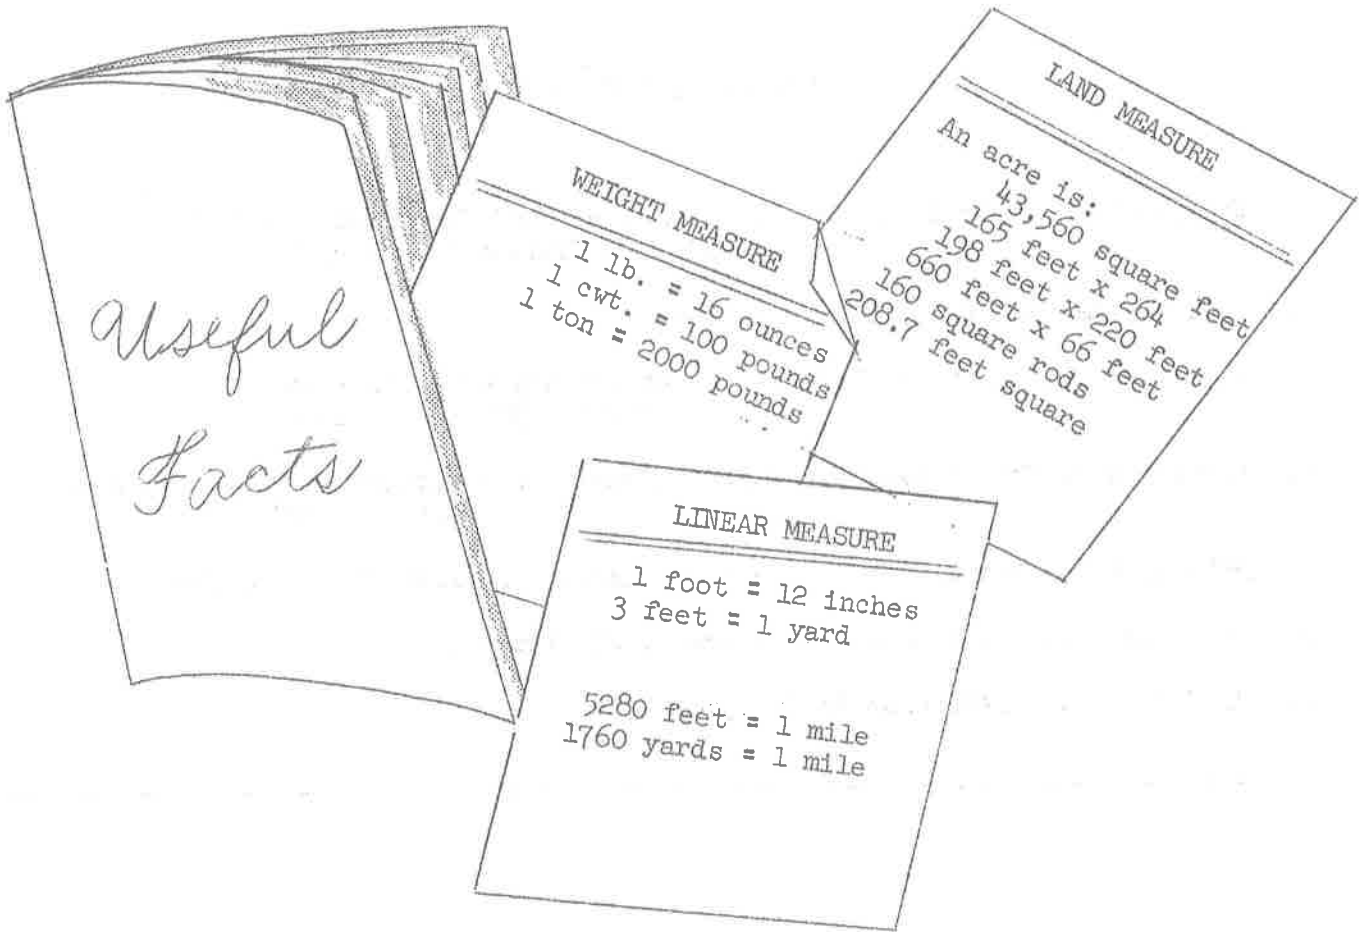 Useful
Facts
WEIGHT MEASURE
1 lb. = 16 ounces
1 cwt. = 100 pounds
1 ton = 2000 pounds
LAND MEASURE
An acre is:
43,560 square feet
165 feet x 264
198 feet x 220 feet
660 feet x 66 feet
160 square rods
208.7 feet square
LINEAR MEASURE
1 foot = 12 inches
3 feet = 1 yard
5280 feet = 1 mile
1760 yards = 1 mile